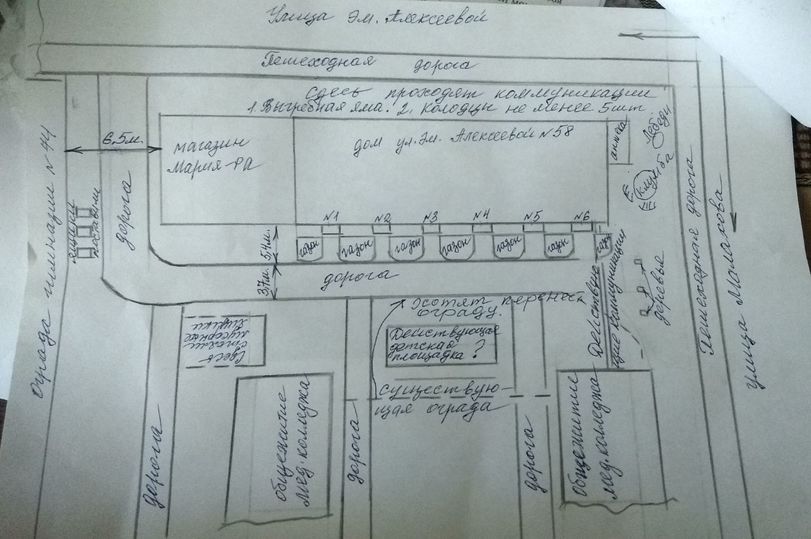 Улица Эм. Алексеевой
Пешеходная дорога
Здесь проходят коммуникации
1. Выгребная яма. 2. Колодцы не менее 5шт
Ограда гимназии №44
6,5м.
дорога
ящики
поставили
магазин
Мария-Ра
дом ул. Эм. Алексеевой №58
аптека
Лебеди
Клумба
№1
№2
№3
№4
№5
№6
газон
газон
газон
газон
газон
газон
газон
5,4м.
3,7м.
дорога
Действую
щие коммуникации
деревья
Пешеходная дорога
улица Малахова
Хотят перенес
ограду.
Действующая
детская
площадка?
Здесь
стояли
мусорные
ящики
существую-
щая ограда
общежитие
мед. колледжа
общежитие
мед. колледжа
дорога
дорога
дорога